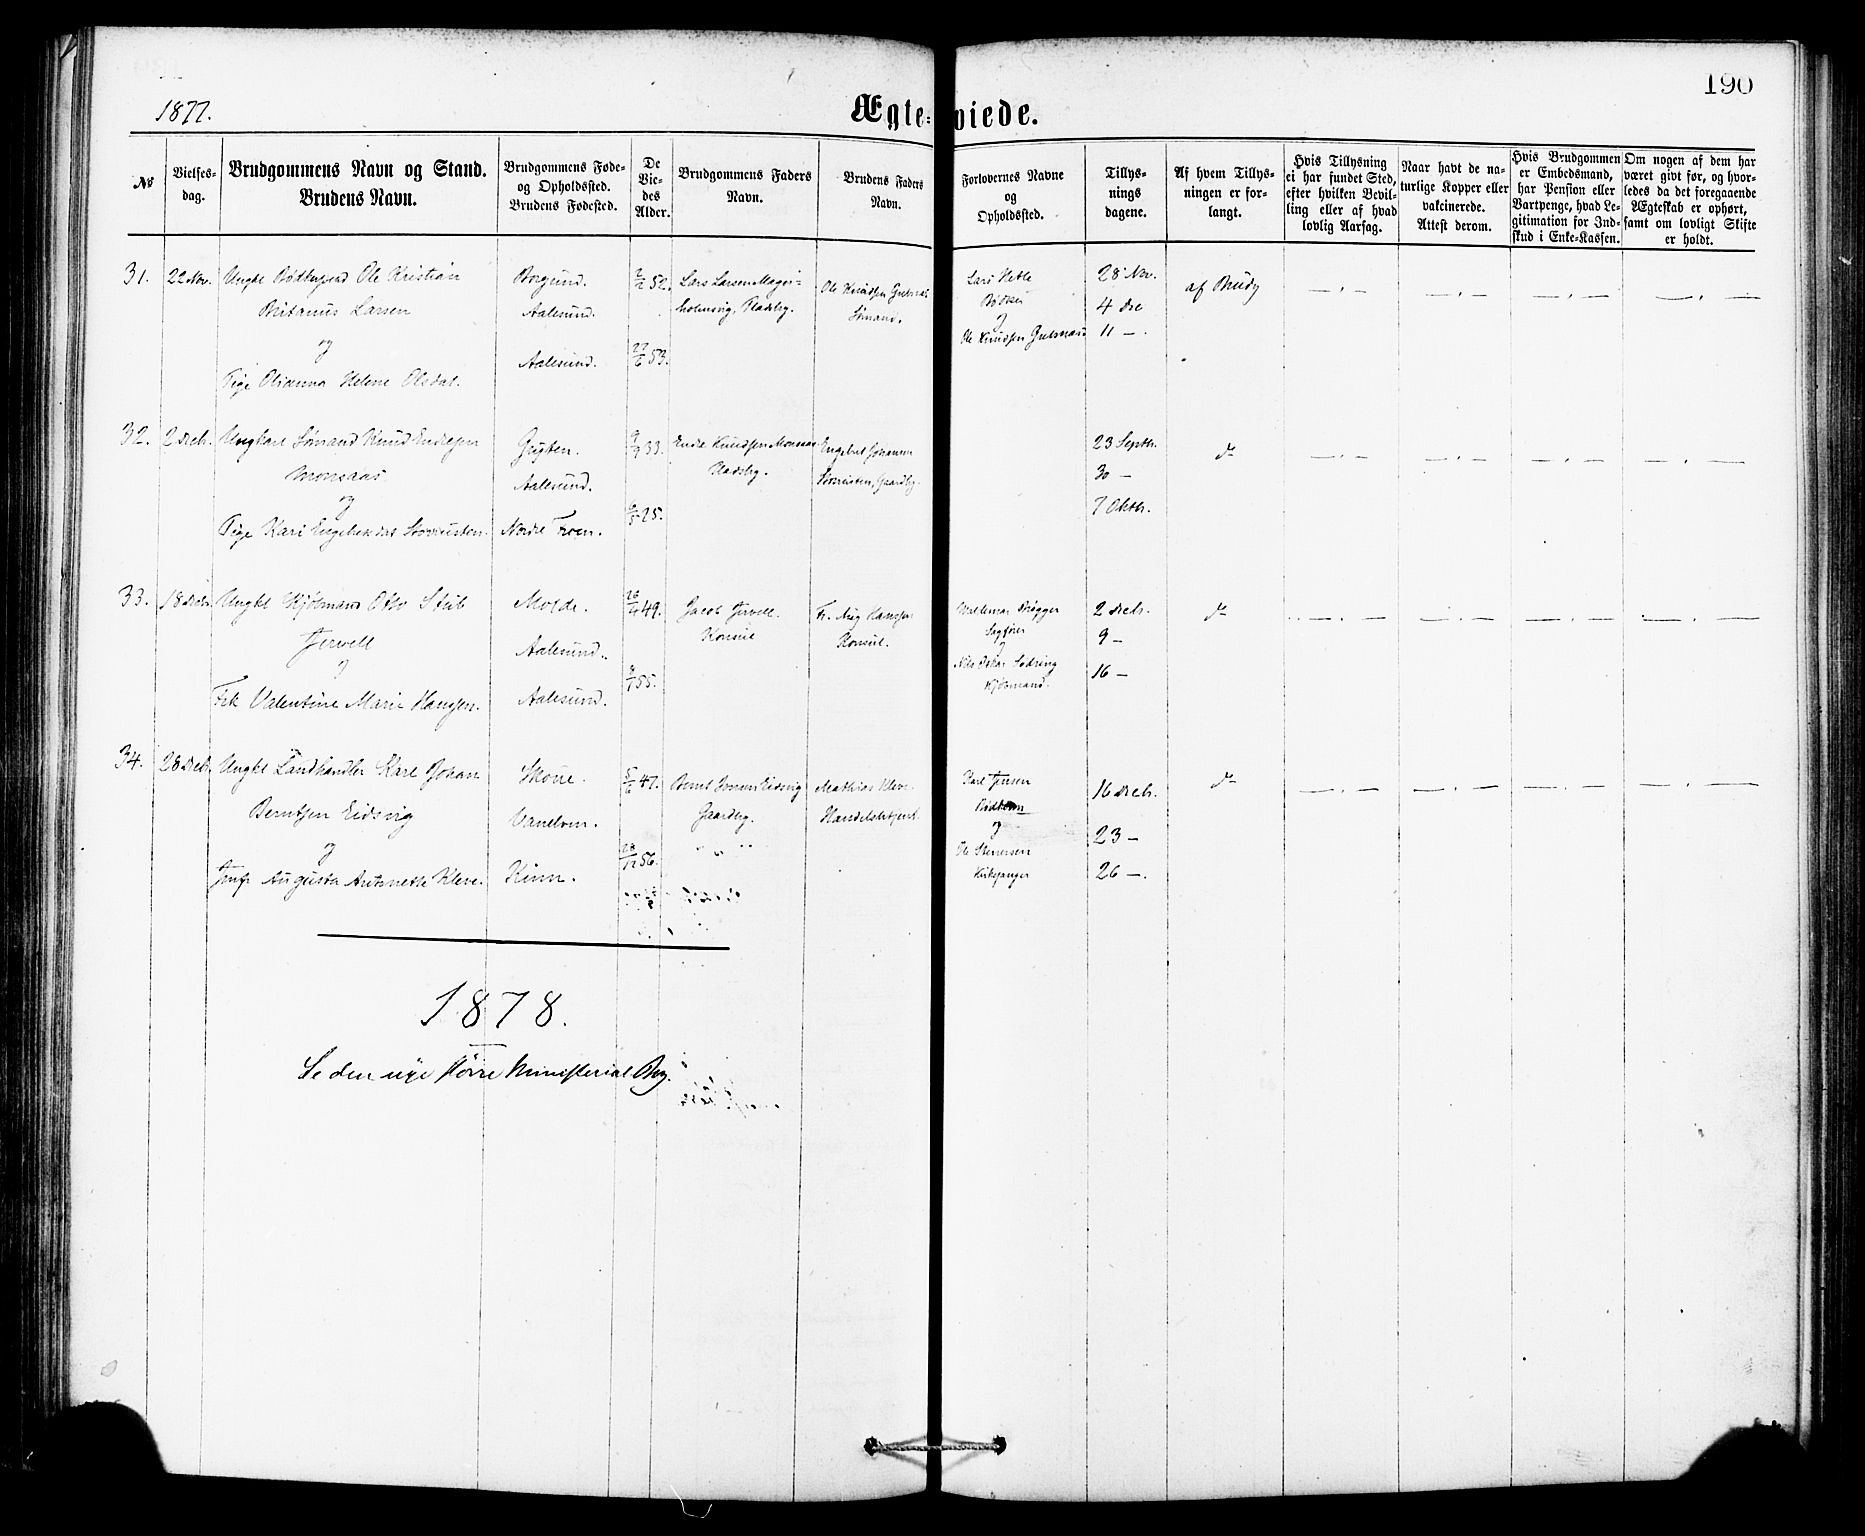 190
1877.
Ægte-viede.
No
Vielses-
dag.
Brudgommens Navn og Stand.
Brudens Navn.
Brudgommens Føde-
og Opholdssted.
Brudens Fødested.
De
Vie-
des
Alder.
Brudgommens Faders
Navn.
Brudens Faders
Navn.
Forlovernes Navne
og
Opholdssted.
Tillys-
nings
dagene.
Af hvem Tillys-
ningen er for-
langt.
Hvis Tillysning
ei har fundet Sted,
efter hvilken Bevil-
ling eller af hvad
lovlig Aarsag.
Naar havt de na-
turlige Kopper eller
vakcinerede.
Attest derom.
Hvis Brudgommen
er Embedsmand,
har Pension eller
Vartpenge, hvad Le-
gitimation for Ind-
skud i Enke-Kassen.
Om nogen af dem har
været gift før, og hvor-
ledes da det foregaaende
Ægteskab er ophørt,
samt om lovligt Skifte
er holdt.
31.
22 Nov.
Ole Kristian
Britanus Larsen
og
Pige Olianna Helene Olsdat.
Borgund.
Aalesund.
Aalesund.
52.
53.
Lars Larsen
Ole Knudsen
Sømand.
Lars
og
Ole Knudsen
28 Nov.
4 Dec
11 —.
af Brudg
32.
2 Decb.
Ungkarl Sømand Knud Endresen
Monsaas
og
Pige Kari
Grytten.
Aalesund.
Nordre Fron.
9/9 33.
25.
Endre Knudsen Monsaas
Pladsbg.
Engebret Johansen
Gaardbg.
23 Septbr.
30 —
7 Oktbr.
do
33.
18 Decb.
Ungkl Kjøbmand Otto Stub
Jervell
og
Frk Valentine Marie Hanssen.
Molde.
Aalesund.
Aalesund.
49.
55.
Jacob Jervell.
Konsul
Fr. Aug Hanssen
Konsul.
Sagfører
og
Nils Oskar
Kjøbmand.
2 Decb.
9 —
16 —
do
34.
28 Decb.
Ungkl Landhandler Karl Johan
Berntsen Eidsvig
og
Jmfr Augusta Antonette Kleve.
Skoue.
Vanelven.
Kinn.
47.
56.
Bernt Eidsvig
Gaardbg.
Mathias Kleve.
Handelsbetjent.
Karl Jensen
og
Ole Stenersen
Kirkesanger
16 Decb.
23 —
26 —.
do
1878.
Se den nye større Ministerial Bog.